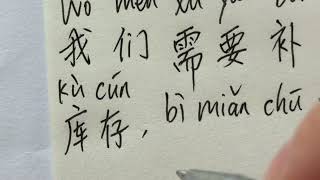 Wǒ men xū yào
我们需要补
kù cún
库存，bì miǎn chū